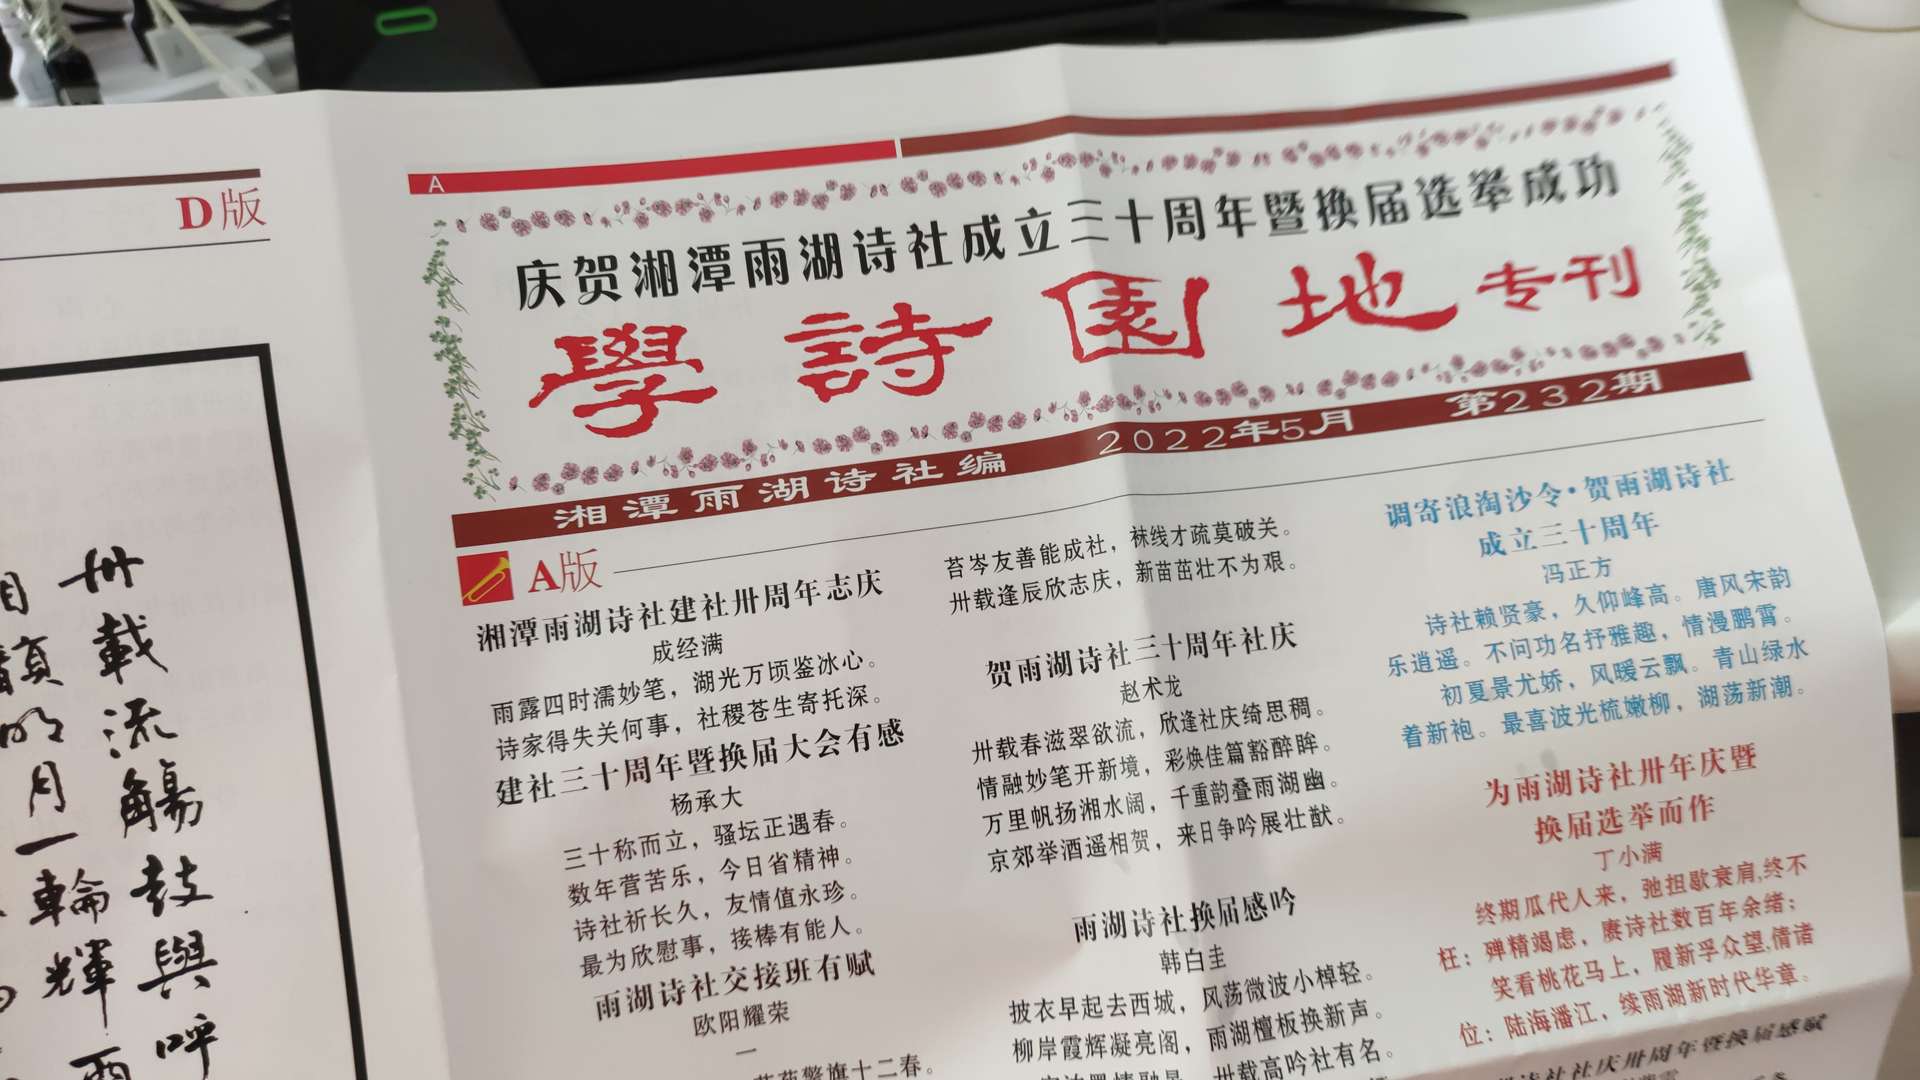 D版
卅載流觴鼓與呼
明月一輪輝
A
庆贺湘潭雨湖诗社成立三十周年暨换届选举成功
學詩園地专刊
湘潭雨湖诗社编 2022年5月 第232期
A版
湘潭雨湖诗社建社卅周年志庆
成经满
雨露四时濡妙笔，湖光万顷鉴冰心。
诗家得失关何事，社稷苍生寄托深。
建社三十周年暨换届大会有感
杨承大
三十称而立，骚坛正遇春。
数年营苦乐，今日省精神。
诗社祈长久，友情值永珍。
最为欣慰事，接棒有能人。
雨湖诗社交接班有赋
欧阳耀荣
一
旗十二春。
苔岑友善能成社，袜线才疏莫破关。
卅载逢辰欣志庆，新苗茁壮不为艰。
贺雨湖诗社三十周年社庆
赵术龙
卅载春滋翠欲流，欣逢社庆绮思稠。
情融妙笔开新境，彩焕佳篇豁醉眸。
万里帆扬湘水阔，千重韵叠雨湖幽。
京郊举酒遥相贺，来日争吟展壮猷。
雨湖诗社换届感吟
韩白圭
披衣早起去西城，风荡微波小棹轻。
柳岸霞辉凝亮阁，雨湖檀板换新声。
卅载高吟社有名。
调寄浪淘沙令·贺雨湖诗社
成立三十周年
冯正方
诗社赖贤豪，久仰峰高。唐风宋韵
乐逍遥。不问功名抒雅趣，情漫鹏霄。
初夏景尤娇，风暖云飘。青山绿水
着新袍。最喜波光梳嫩柳，湖荡新潮。
为雨湖诗社卅年庆暨
换届选举而作
丁小满
终期瓜代人来，弛担歇衰肩,终不
枉：殚精竭虑，赓诗社数百年余绪；
笑看桃花马上，履新孚众望,倩诸
位：陆海潘江，续雨湖新时代华章。
诗社社庆卅周年暨换届感赋